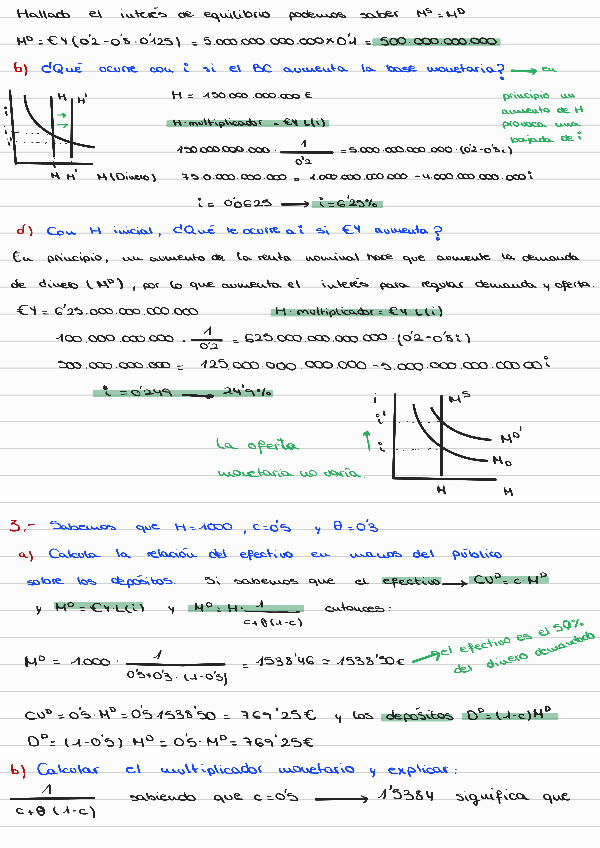 Hallado el interés de equilibrio podemos saber Mˢ=Mᴰ
Mᴰ=€Y(0'2-0'8·0'125) = 5.000.000.000.000×0'1 = 500.000.000.000
b) ¿Qué ocurre con i si el BC aumenta la base monetaria? → en
principio un
aumento de H
provoca una
bajada de i
i
i'
H H'
M M' M(Dinero)
H = 150.000.000.000 €
H·multiplicador = €Y L(i)
150.000.000.000 · 1/0'2 = 5.000.000.000.000·(0'2-0'8i)
750.000.000.000 = 1.000.000.000.000 - 4.000.000.000.000i
i = 0'0625 → i=6'25%
d) Con H inicial, ¿Qué le ocurre a i si €Y aumenta?
En principio, un aumento de la renta nominal hace que aumente la demanda
de dinero (Mᴰ), por lo que aumenta el interés para regular demanda y oferta.
€Y = 6'25.000.000.000.000 H·multiplicador = €Y L(i)
100.000.000.000 · 1/0'2 = 625.000.000.000.000·(0'2-0'8i)
500.000.000.000 = 125.000.000.000.000 - 5.000.000.000.000.000i
i = 0'249 → 24'9%
La oferta
monetaria no varía.
i
i'
i
Mˢ
Mᴅ'
Mᴅ
M M
3.- Sabemos que H=1000, c=0'5 y θ=0'3
a) Calcula la relación del efectivo en manos del público
sobre los depósitos. Si sabemos que el efectivo → CUᴰ=c·Mᴰ
y Mᴰ=€Y·L(i) y Mᴰ=H· 1/c+θ(1-c) entonces:
Mᴰ = 1000 · 1/0'5+0'3·(1-0'5) = 1538'46 ≈ 1538'50€ → el efectivo es el 50%
del dinero demandado
CUᴰ = 0'5·Mᴰ = 0'5·1538'50 = 769'25€ y los depósitos Dᴰ=(1-c)Mᴰ
Dᴰ = (1-0'5) Mᴰ = 0'5·Mᴰ = 769'25€
b) Calcular el multiplicador monetario y explicar:
1/c+θ(1-c) sabiendo que c=0'5 → 1'5384 significa que